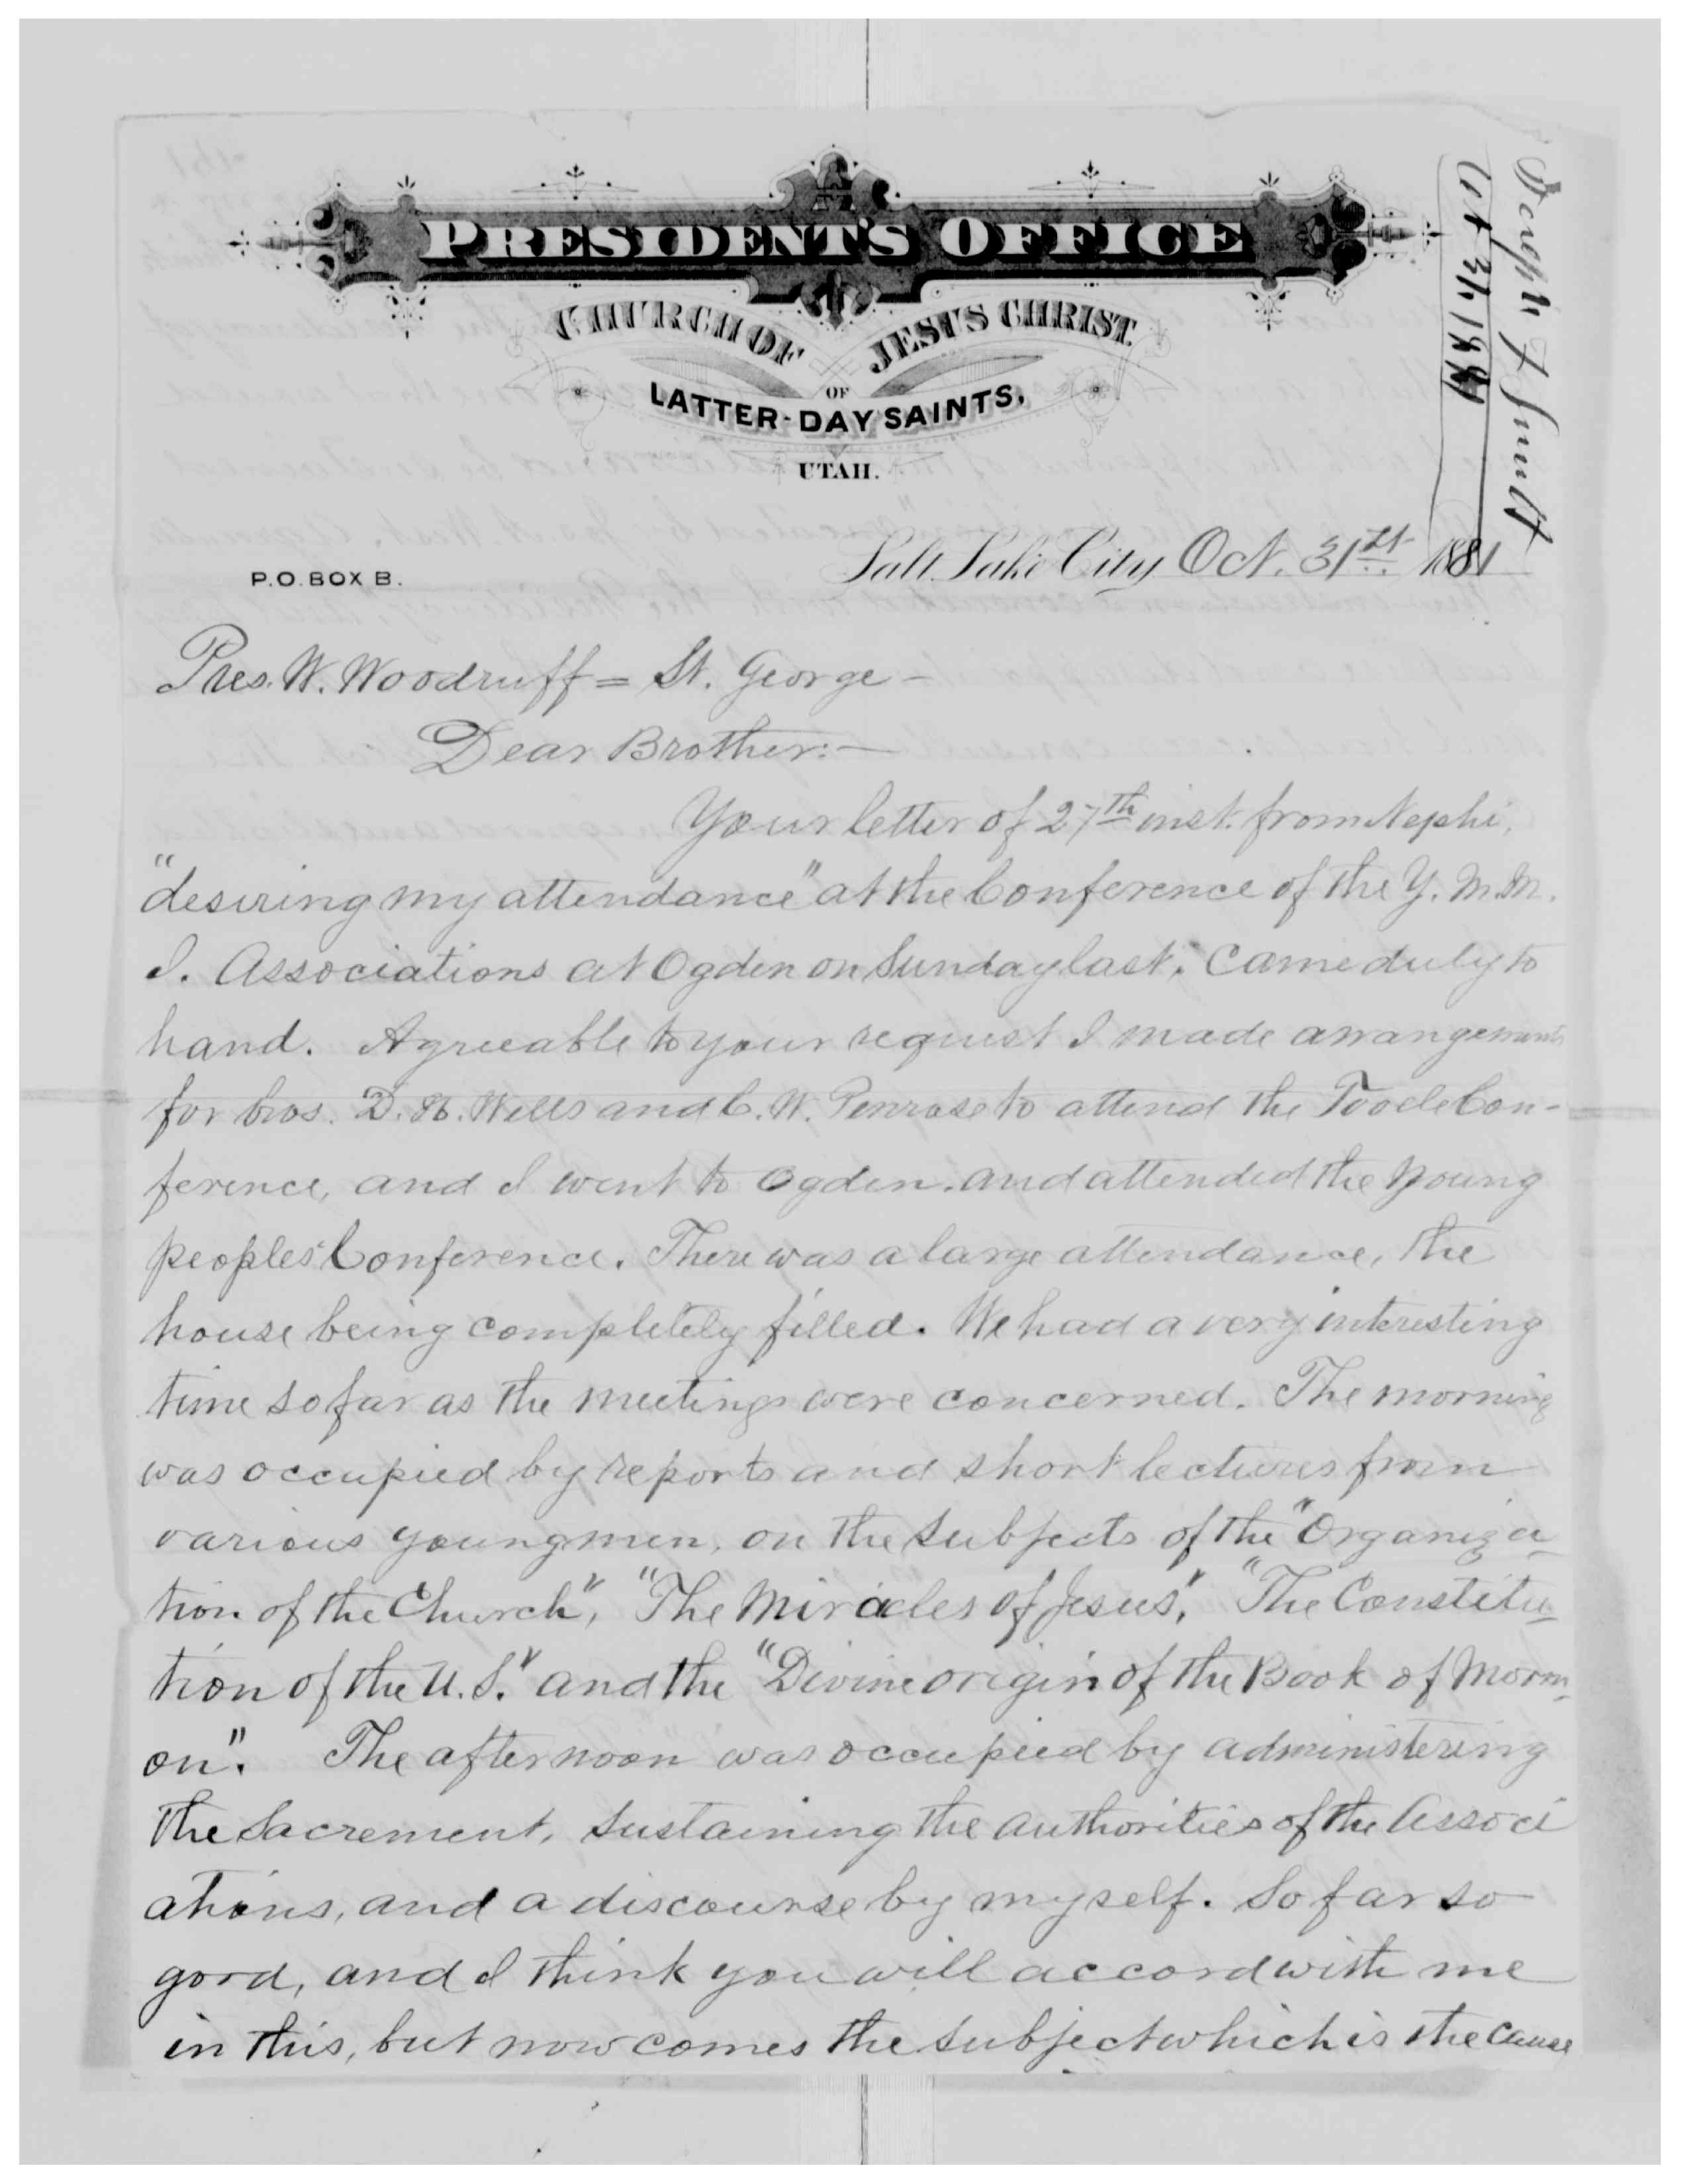 PRESIDENT'S OFFICE
CHURCH OF JESUS CHRIST
OF
LATTER-DAY SAINTS,
UTAH.
Joseph F Smith
Oct 31. 1881
P.O. BOX B.
Salt Lake City Oct. 31st 1881
Pres. W. Woodruff = St. George -
Dear Brother:-
Your letter of 27th inst. from Nephi,
"desiring my attendance" at the Conference of the Y. M. M.
I. Associations at Ogden on Sunday last, Came duly to
hand. Agreeable to your request I made arrangements
for bros. D. H. Wells and C. W. Penrose to attend the Tooele Con-
ference, and I went to Ogden. and attended the young
peoples' Conference. There was a large attendance, the
house being completely filled. We had a very interesting
time so far as the meetings were concerned. The morning
was occupied by reports and short lectures from
various young men, on the subjects of the "Organiza-
tion of the Church", "The Miracles of Jesus", "The Constitu-
tion of the U.S." and the "Divine origin of the Book of Morm-
on". The afternoon was occupied by administering
the Sacrement, sustaining the authorities of the Associ
ations, and a discourse by myself. So far so
good, and I think you will accord with me
in this, but now comes the subject which is the cause